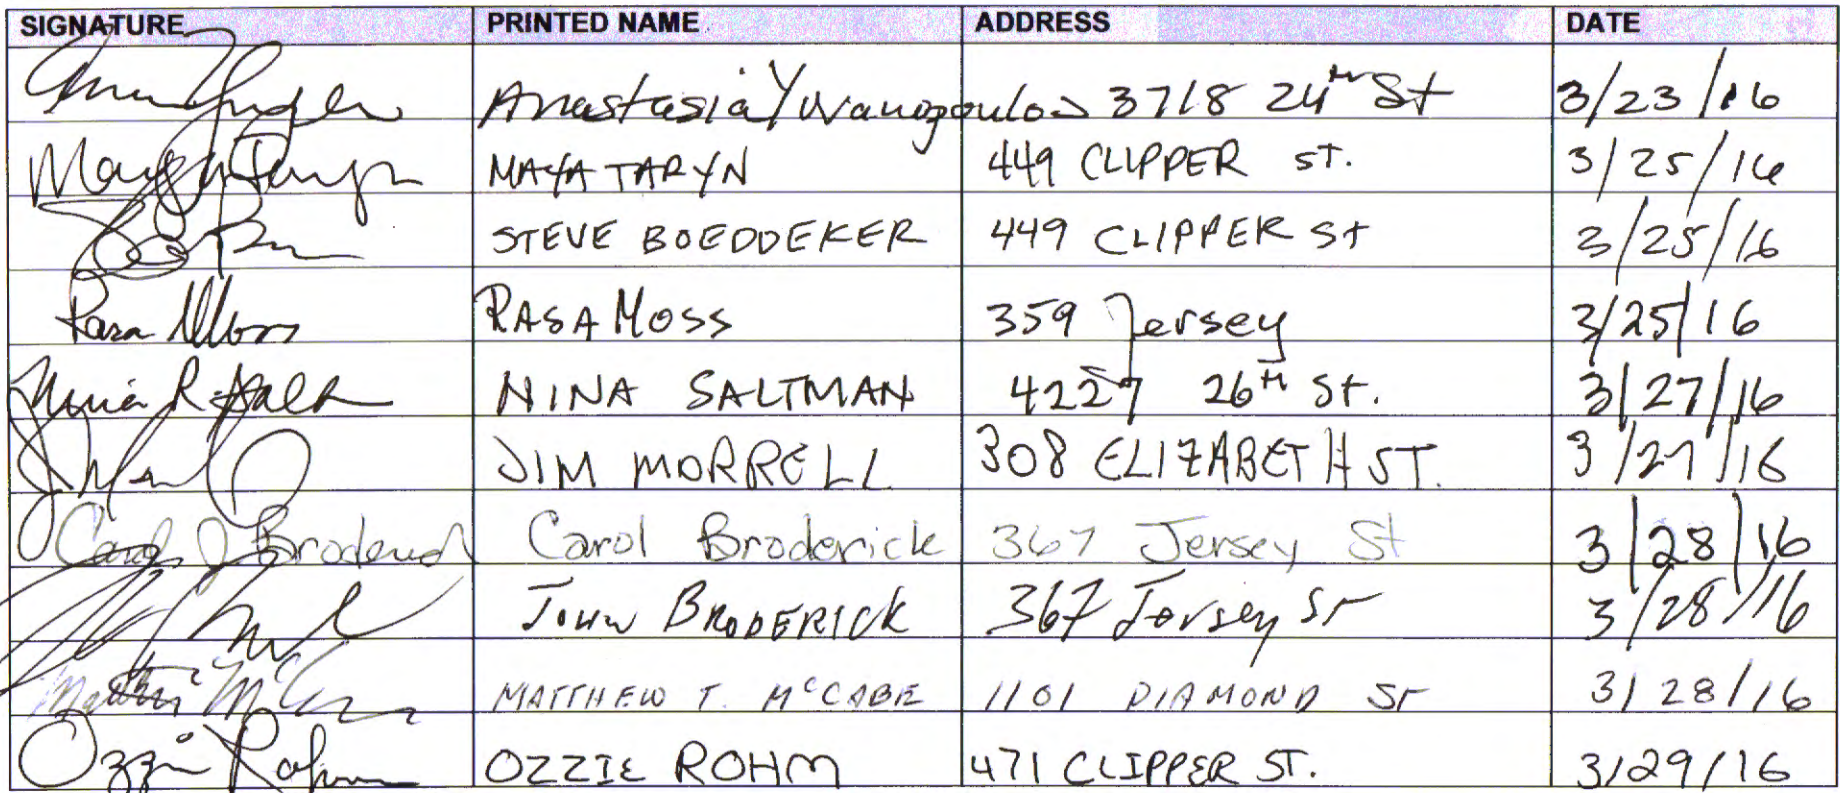 SIGNATURE PRINTED NAME ADDRESS DATE
Anastasia Yovanopoulos 3718 24th St 3/23/16
Maya Taryn MAYA TARYN 449 CLIPPER ST. 3/25/16
STEVE BOEDDEKER 449 CLIPPER St 3/25/16
Rasa Moss RASA MOSS 359 Jersey 3/25/16
NINA SALTMAN 4227 26TH St. 3/27/16
JIM MORRELL 308 ELIZABETH ST. 3/27/16
Carol J Broderick Carol Broderick 367 Jersey St 3/28/16
JOHN BRODERICK 367 Jersey St 3/28/16
MATTHEW T. McCABE 1101 DIAMOND ST 3/28/16
Ozzie Rohm OZZIE ROHM 471 CLIPPER ST. 3/29/16